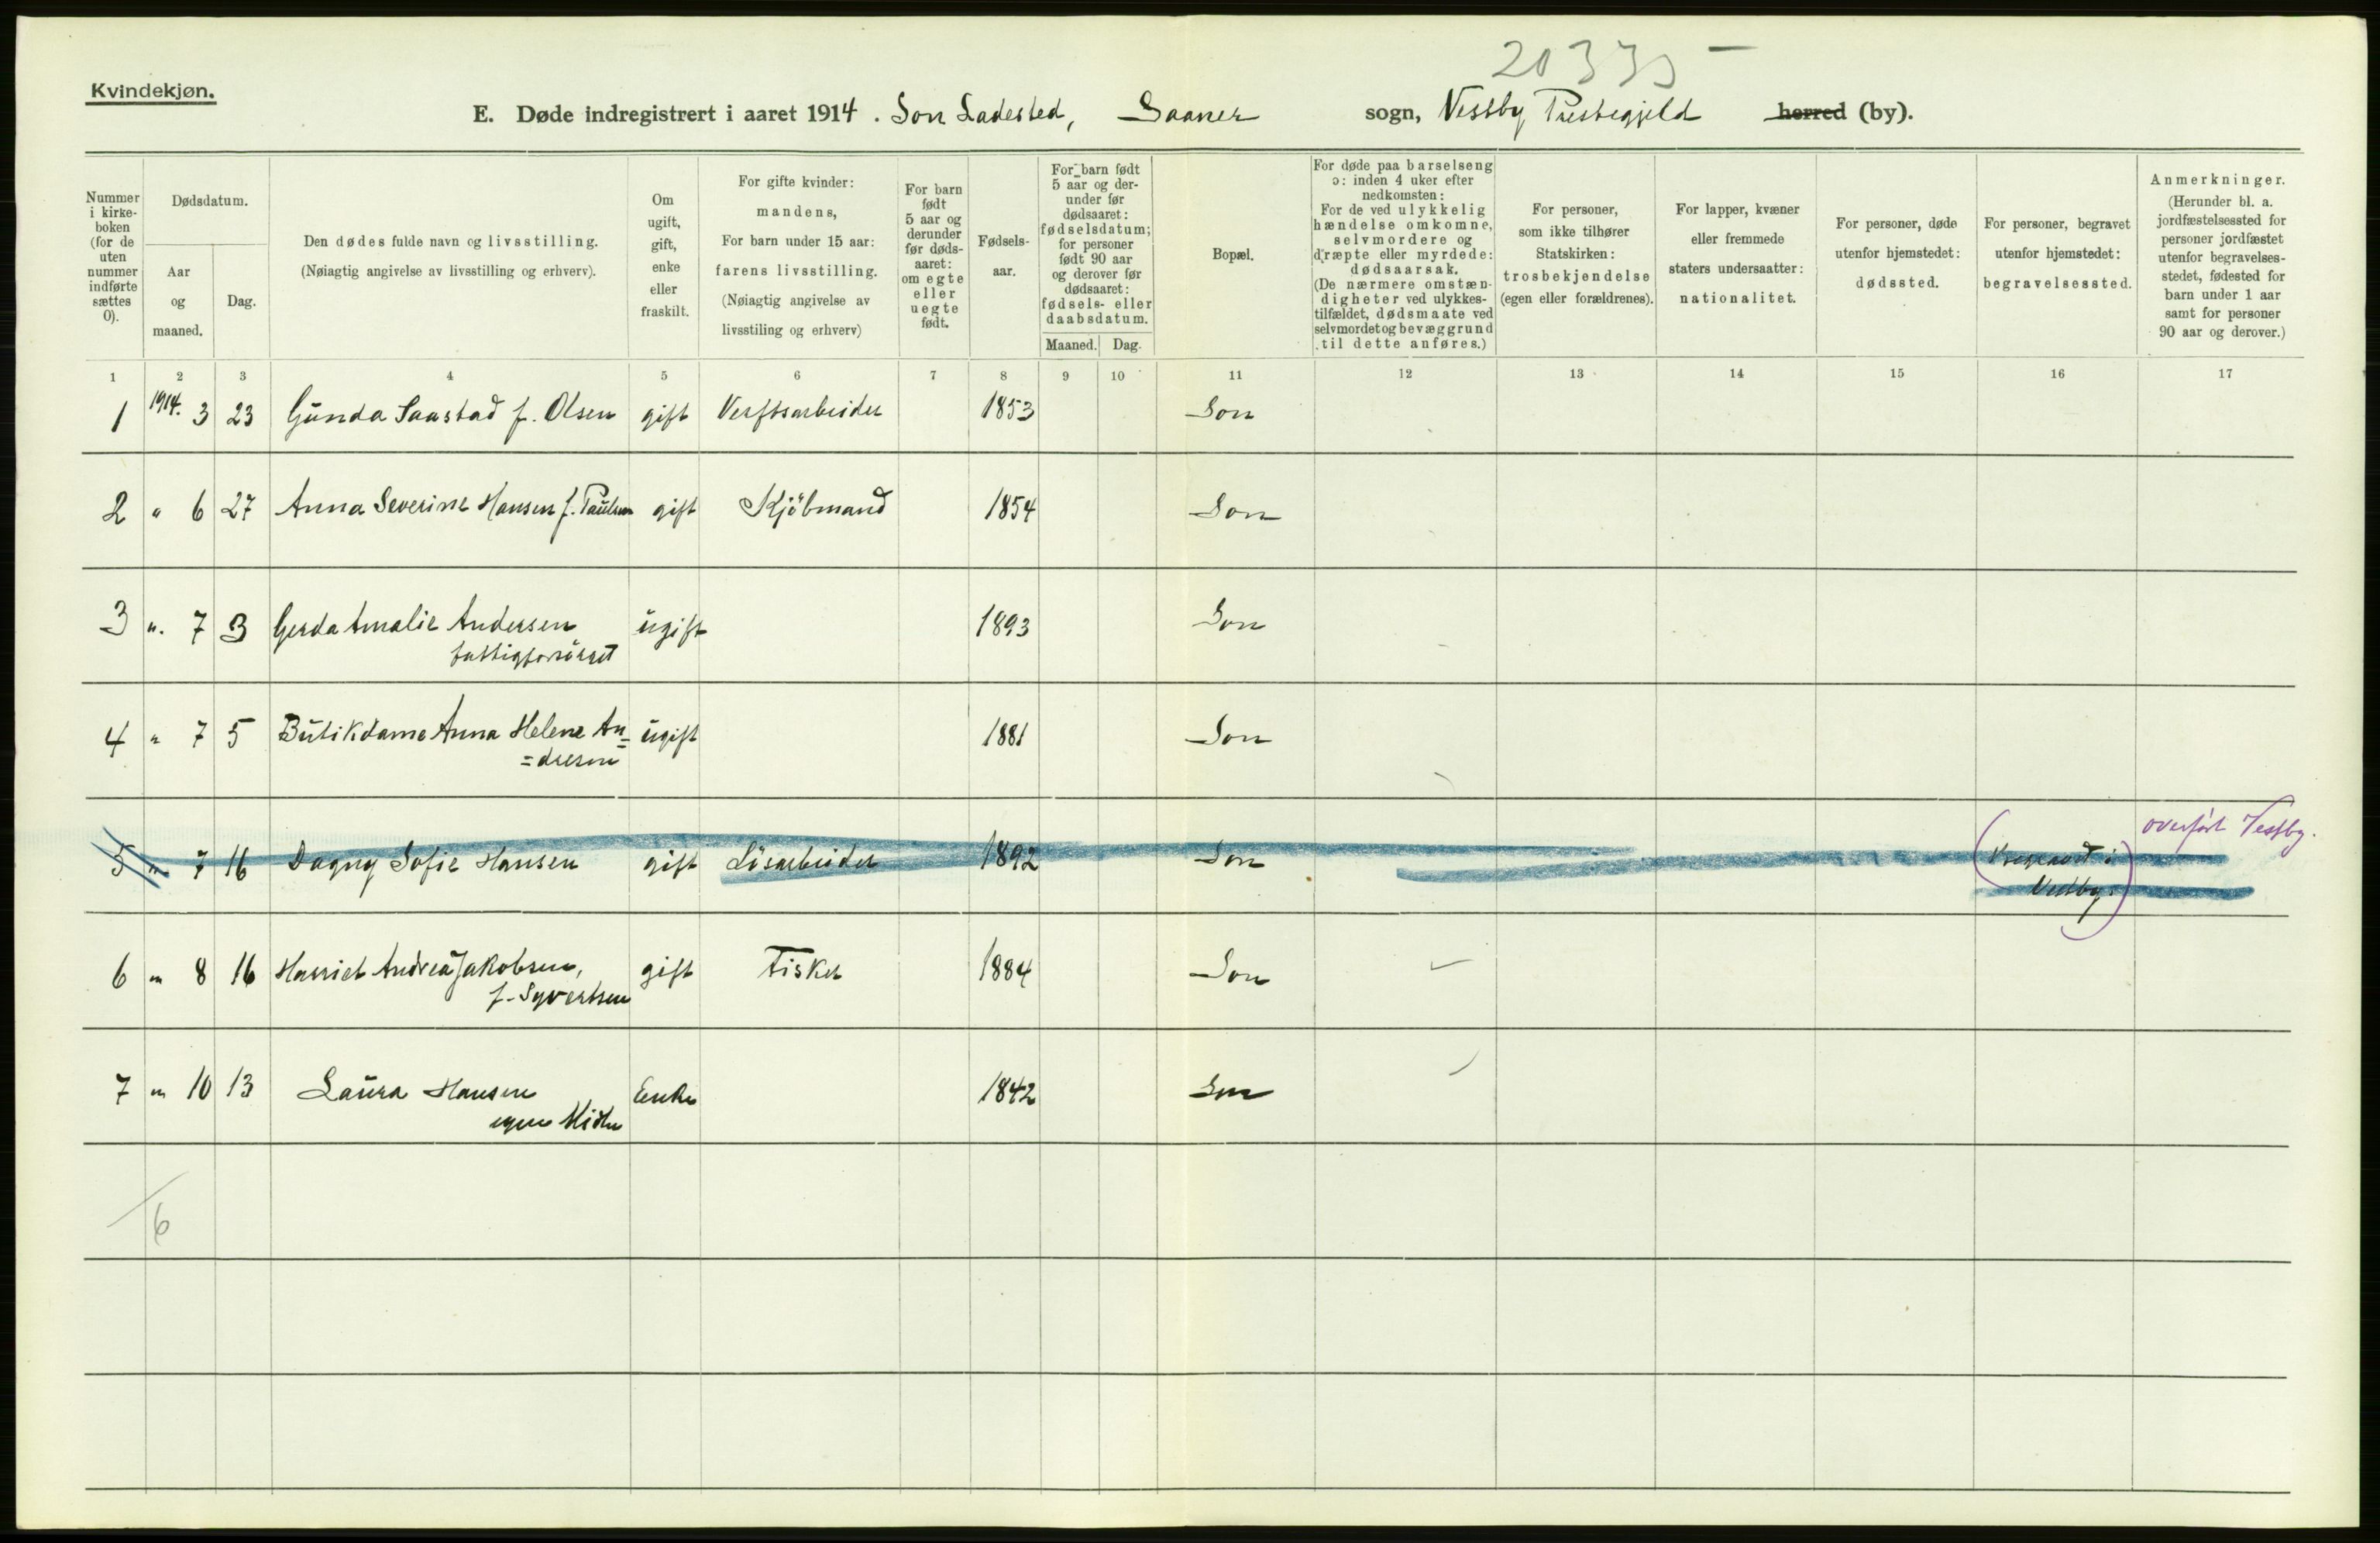 20335 –
Kvindekjøn.
E. Døde indregistrert i aaret 1914. Son Ladested, Saaner sogn, Vestby Prestegjeld ~~herred~~ (by).
Nummer i kirke- boken (for de uten nummer indførte sættes 0).
Dødsdatum.
Aar og maaned.
Dag.
Den dødes fulde navn og livsstilling.
(Nøiagtig angivelse av livsstilling og erhverv).
Om ugift, gift, enke eller fraskilt.
For gifte kvinder: mandens,
For barn under 15 aar: farens livsstilling.
(Nøiagtig angivelse av livsstiling og erhverv)
For barn født 5 aar og derunder før døds- aaret: om egte eller uegte født.
Fødsels- aar.
For barn født 5 aar og der- under før dødsaaret: fødselsdatum; for personer født 90 aar og derover før dødsaaret: fødsels- eller daabsdatum.
Maaned. Dag.
Bopæl.
For døde paa barselseng ɔ: inden 4 uker efter nedkomsten:
For de ved ulykkelig hændelse omkomne, selvmordere og dræpte eller myrdede: dødsaarsak.
(De nærmere omstæn- digheter ved ulykkes- tilfældet, dødsmaate ved selvmordet og bevæggrund til dette anføres.)
For personer, som ikke tilhører Statskirken: trosbekjendelse (egen eller forældrenes).
For lapper, kvæner eller fremmede staters undersaatter: nationalitet.
For personer, døde utenfor hjemstedet: dødssted.
For personer, begravet utenfor hjemstedet: begravelsessted.
Anmerkninger.
(Herunder bl. a. jordfæstelsessted for personer jordfæstet utenfor begravelses- stedet, fødested for barn under 1 aar samt for personer 90 aar og derover.)
1 2 3 4 5 6 7 8 9 10 11 12 13 14 15 16 17
1 1914. 3 23 Gunda Saastad f. Olsen gift Verftsarbeider 1853 Son
2 " 6 27 Anna Severine Hansen f. Paulsen gift Kjöbmand 1854 Son
3 " 7 3 Gerda Amalie Andersen ugift 1893 Son
fattigforsörget
4 " 7 5 Butikdame Anna Helene An= ugift 1881 Son
=dresen
5 " 7 16 Dagny Sofie Hansen gift Lösarbeider 1892 Son (Begravet i overført Vestby.
Vestby.)
6 " 8 16 Harriet Andrea Jakobsen, gift Fisker 1884 Son
f. Syvertsen
7 " 10 13 Laura Hansen Enke 1842 Son
egne Midler
6